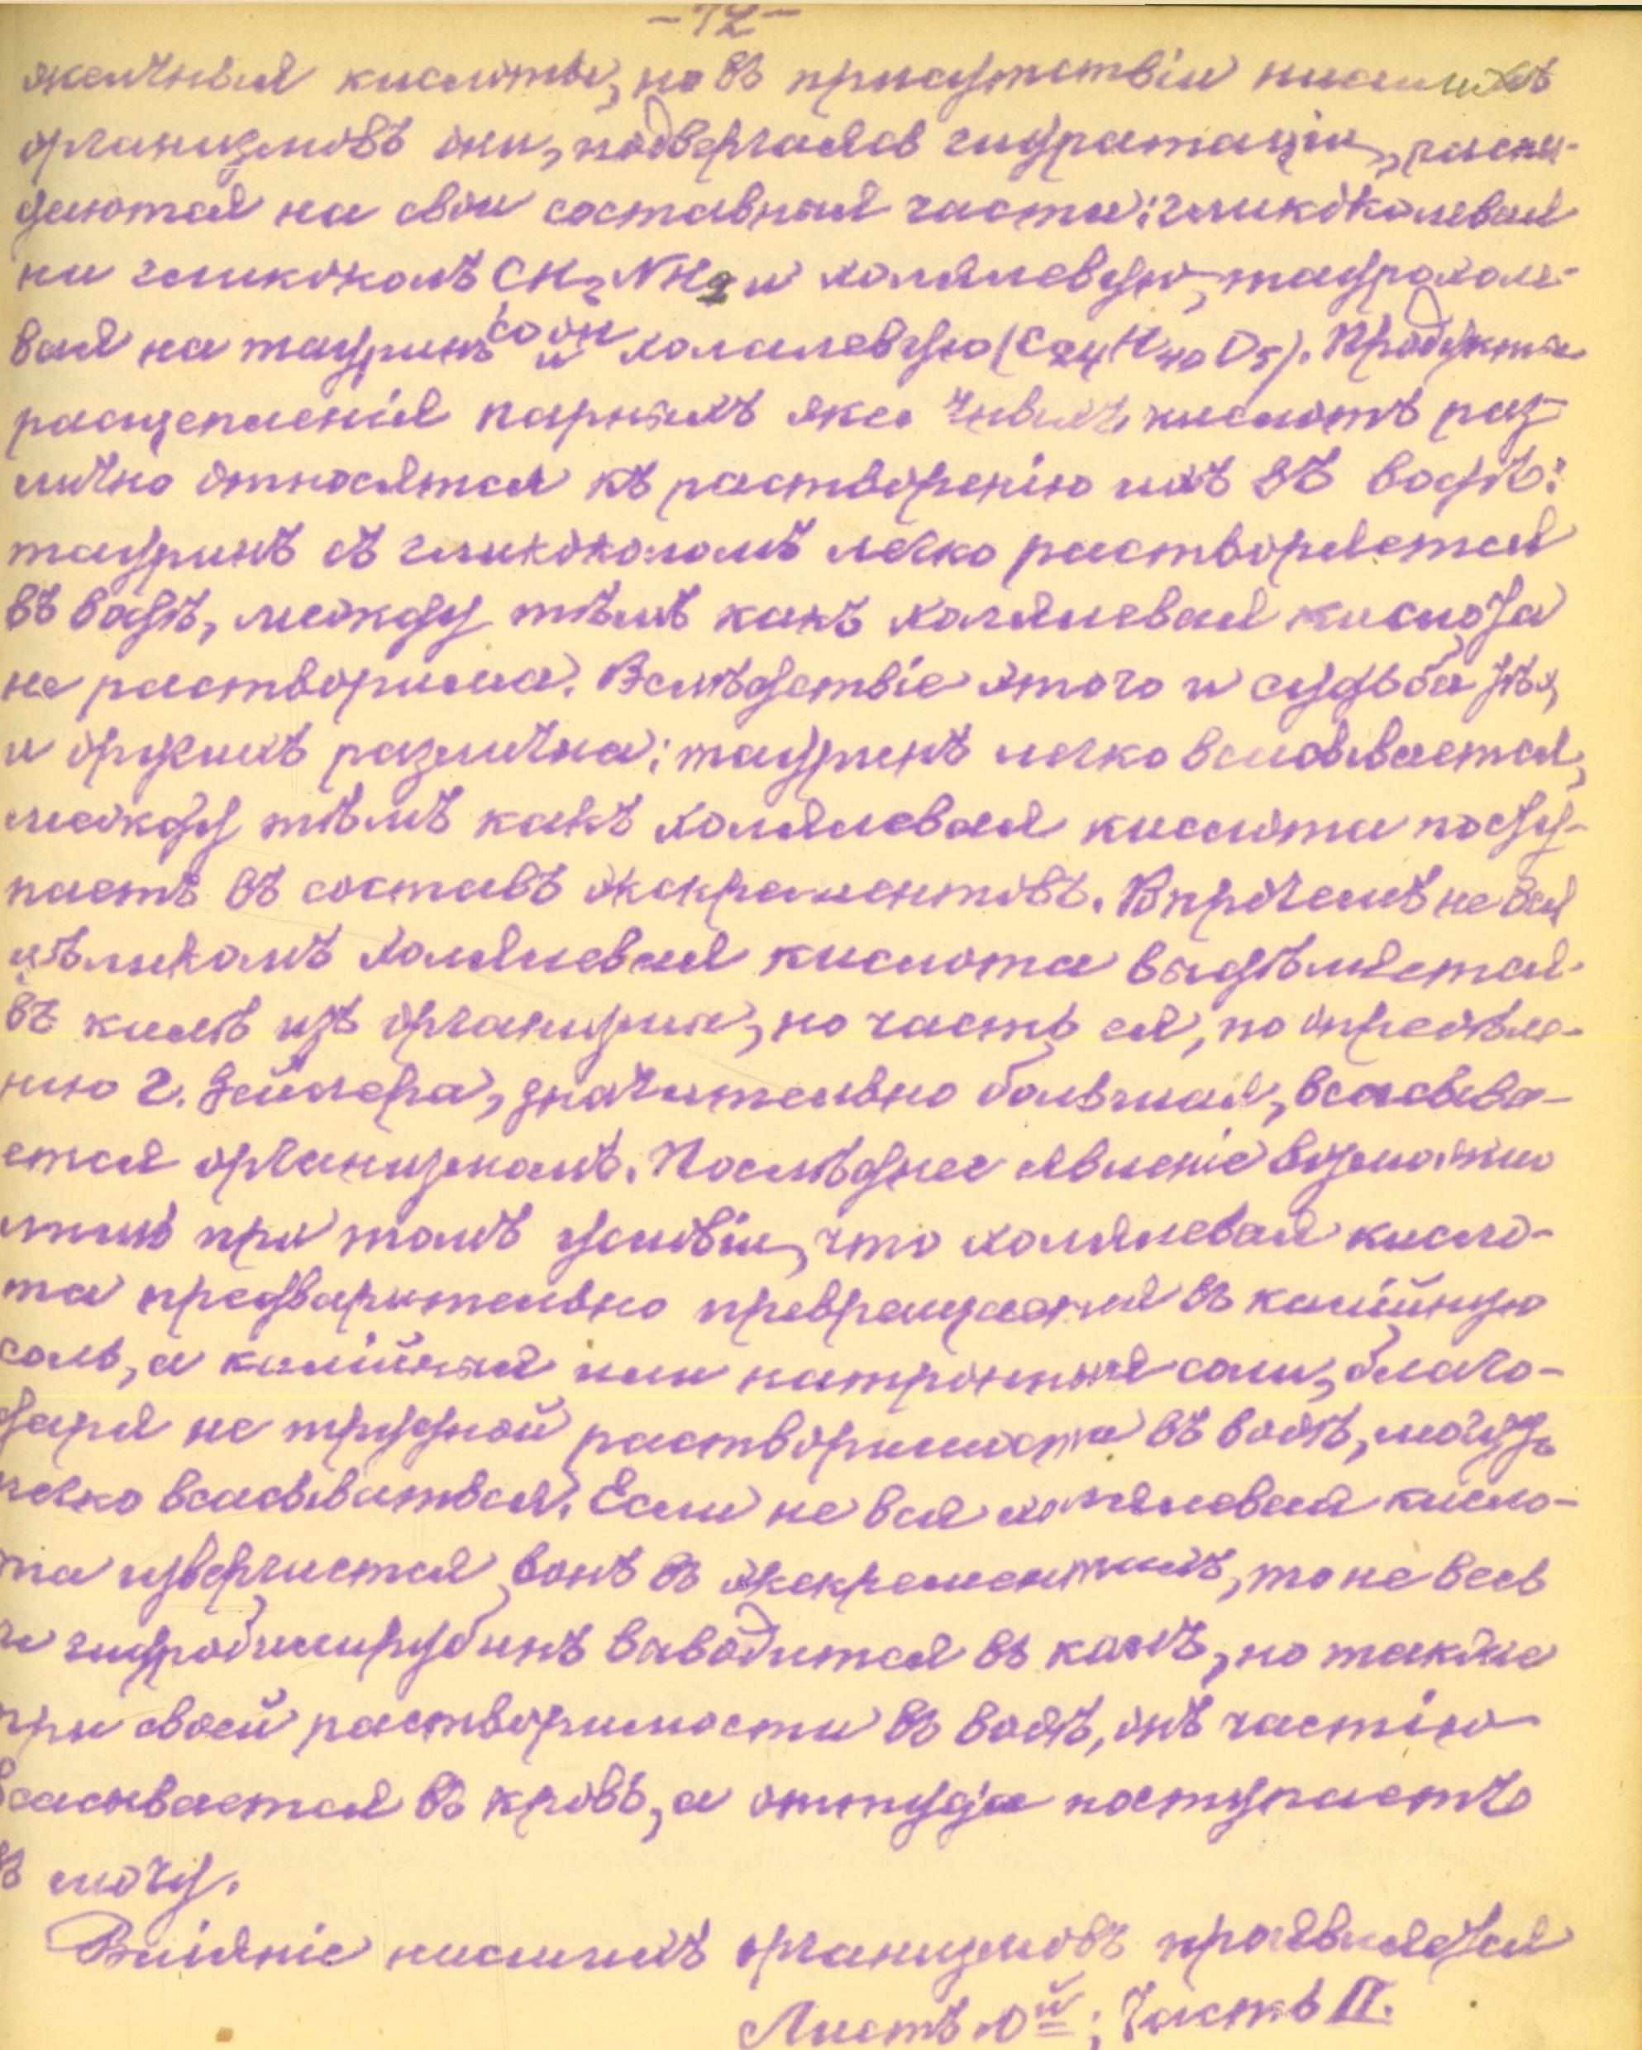 -72-
желчныя кислоты, но въ присутствіи низшихъ
организмовъ они, подвергаясь гидратаціи, распа-
даются на свои составныя части: гликоколевая
на гликоколъ CH2NH2 и холялевую, таурохоле-
COOH
вая на тауринъ и холалевую (C24H40O5). Продукты
расщепленія парныхъ желчныхъ кислотъ раз-
лично относятся къ растворенію ихъ въ водѣ:
тауринъ съ гликоколомъ легко растворяется
въ водѣ, между тѣмъ какъ холялевая кислота
не растворима. Вслѣдствіе этого и судьба тѣхъ
и другихъ различна: тауринъ легко всасывается,
между тѣмъ какъ холялевая кислота посту-
паетъ въ составъ экскрементовъ. Впрочемъ не вся
цѣликомъ холялевая кислота выдѣляется
въ калѣ изъ организма, но часть ея, по опредѣле-
нію г. Зейлера, значительно большая, всасыва-
ется организмомъ. Послѣднее явленіе возможно
лишь при томъ условіи, что холялевая кисло-
та предварительно превращается въ калійную
соль, а калійныя или натронныя соли, благо-
даря не трудной растворимости въ водѣ, могутъ
легко всасываться. Если не вся холялевая кисло-
та извергается вонъ въ экскрементахъ, то не весь
и гидробилирубинъ выводится въ калъ, но также
при своей растворимости въ водѣ, онъ частію
всасывается въ кровь, а оттуда поступаетъ
въ мочу.
Вліяніе низшихъ организмовъ проявляется
Листъ 10й; Часть II.